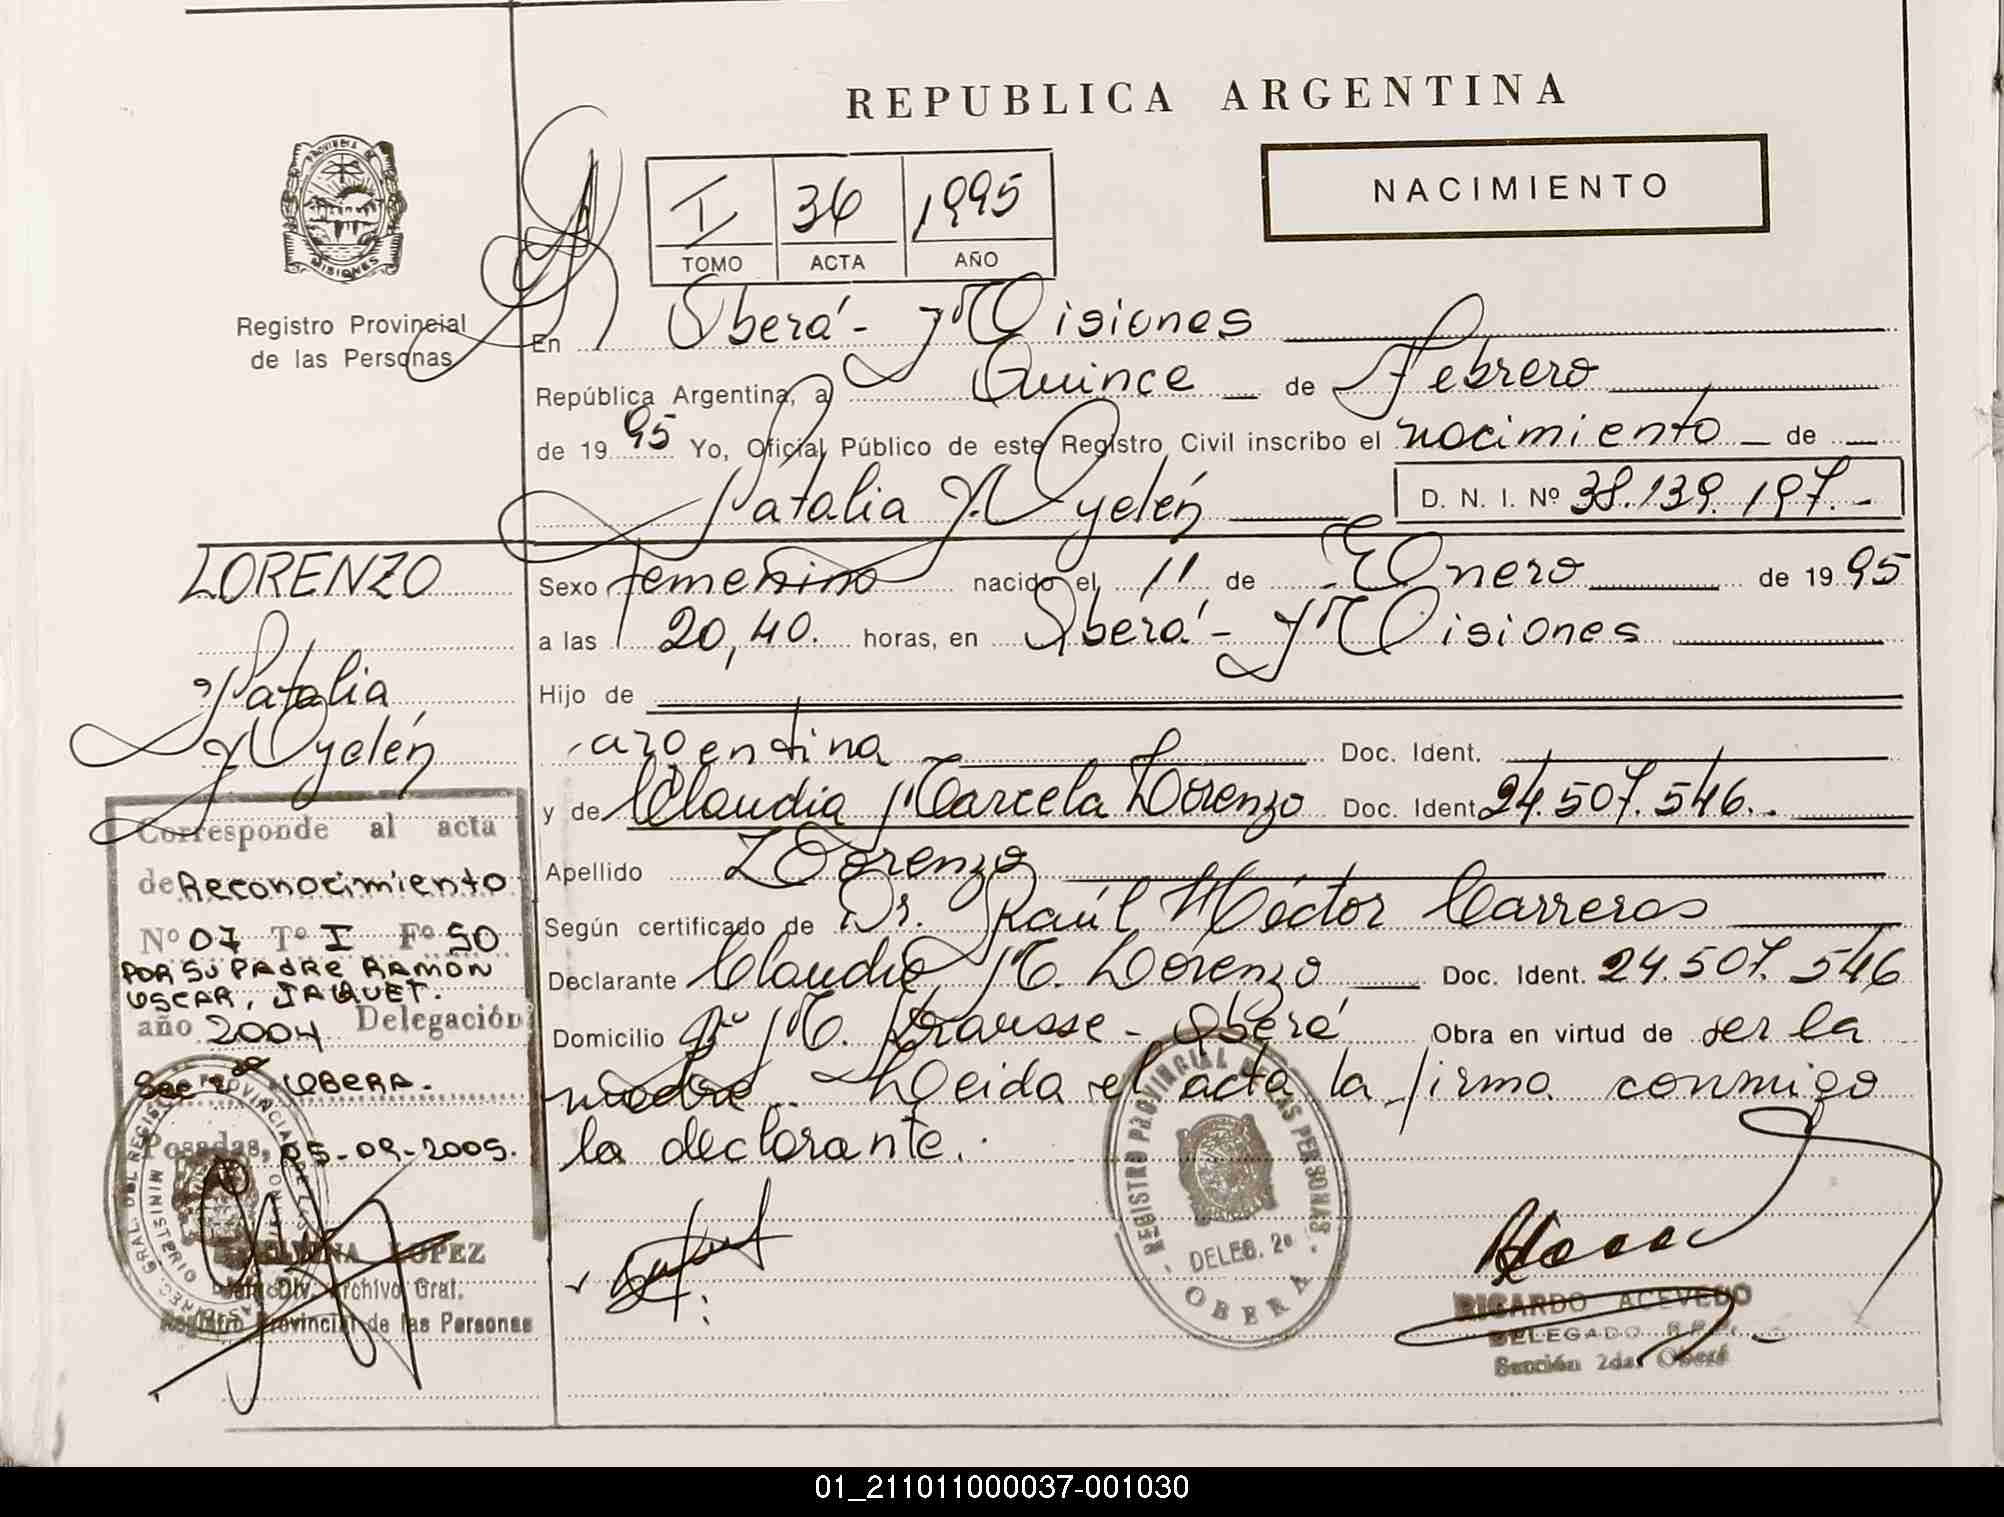 REPUBLICA ARGENTINA
NACIMIENTO
PROVINCIA DE
MISIONES
Registro Provincial
de las Personas
I 36 1995
TOMO ACTA AÑO
En Oberá - Misiones
República Argentina, a Quince de Febrero
de 1995 Yo, Oficial Público de este Registro Civil inscribo el nacimiento de
Natalia Ayelén D. N. I. Nº 38.139.197.-
LORENZO
Natalia
Ayelén
Sexo femenino nacido el 11 de Enero de 1995
a las 20,40. horas, en Oberá - Misiones
Hijo de
argentina Doc. Ident.
y de Claudia Marcela Lorenzo Doc. Ident. 24.507.546.-
Apellido Lorenzo
Según certificado de Dr. Raúl Héctor Carreras
Declarante Claudia M. Lorenzo Doc. Ident. 24.507.546
Domicilio Bº M. Krausse - Oberá Obra en virtud de ser la
madre. Leida el acta la firma conmigo
la declarante.
Corresponde al acta
de Reconocimiento
Nº 07 Tº I Fº 50
POR SU PADRE RAMON
OSCAR, JAQUET.
año 2004 Delegación
Sec 2da OBERA.
Posadas, 05-09-2005.
LOPEZ
Jefe Div. Archivo Gral.
Registro Provincial de las Personas
REGISTRO PROVINCIAL DE LAS PERSONAS
DELEG. 2ª
OBERA
RICARDO ACEVEDO
DELEGADO R.P.P.
Sección 2da. Oberá
01_211011000037-001030